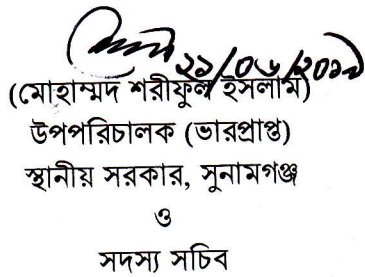 ২১/০৬/২০১৯
(মোহাম্মদ শরীফুল ইসলাম)
উপপরিচালক (ভারপ্রাপ্ত)
স্থানীয় সরকার, সুনামগঞ্জ
ও
সদস্য সচিব